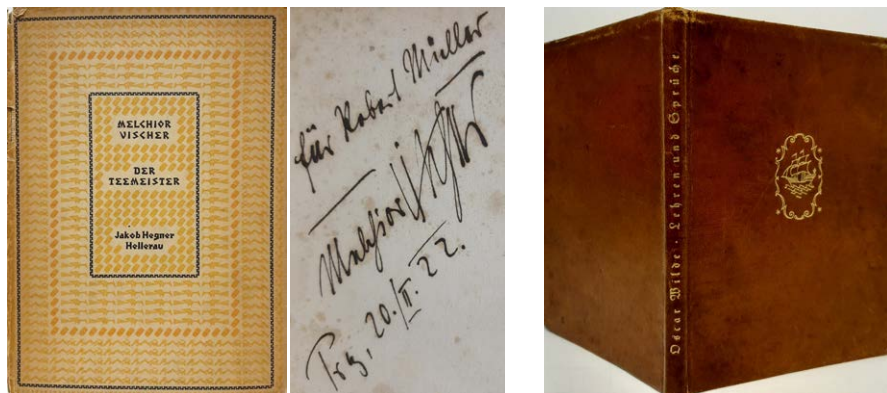 MELCHIOR
VISCHER
DER
TEEMEISTER
Jakob Hegner
Hellerau
für Robert Müller
Melchior Vischer
Prg, 20./II. 22.
Oscar Wilde · Lehren und Sprüche